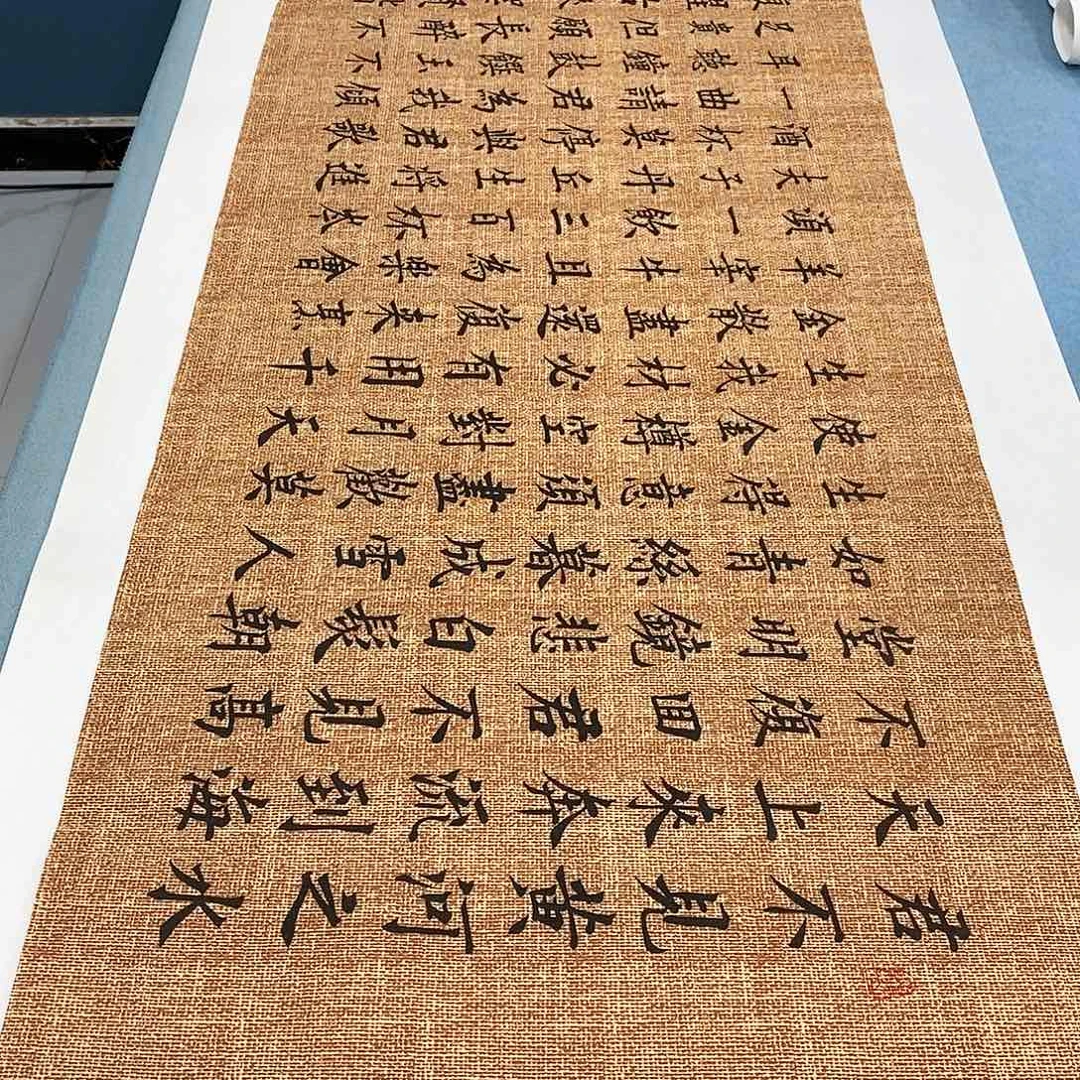 君不見黄河之水
天上来奔流到海
不復回君不見高
堂明鏡悲白髮朝
如青絲暮成雪人
生得意須盡歡莫
使金樽空對月天
生我材必有用千
金散盡還復来烹
羊宰牛且為樂會
須一飲三百杯岑
夫子丹丘生将進
酒杯莫停與君歌
一曲請君為我傾
耳聽鐘鼓饌玉不
足貴但願長醉不